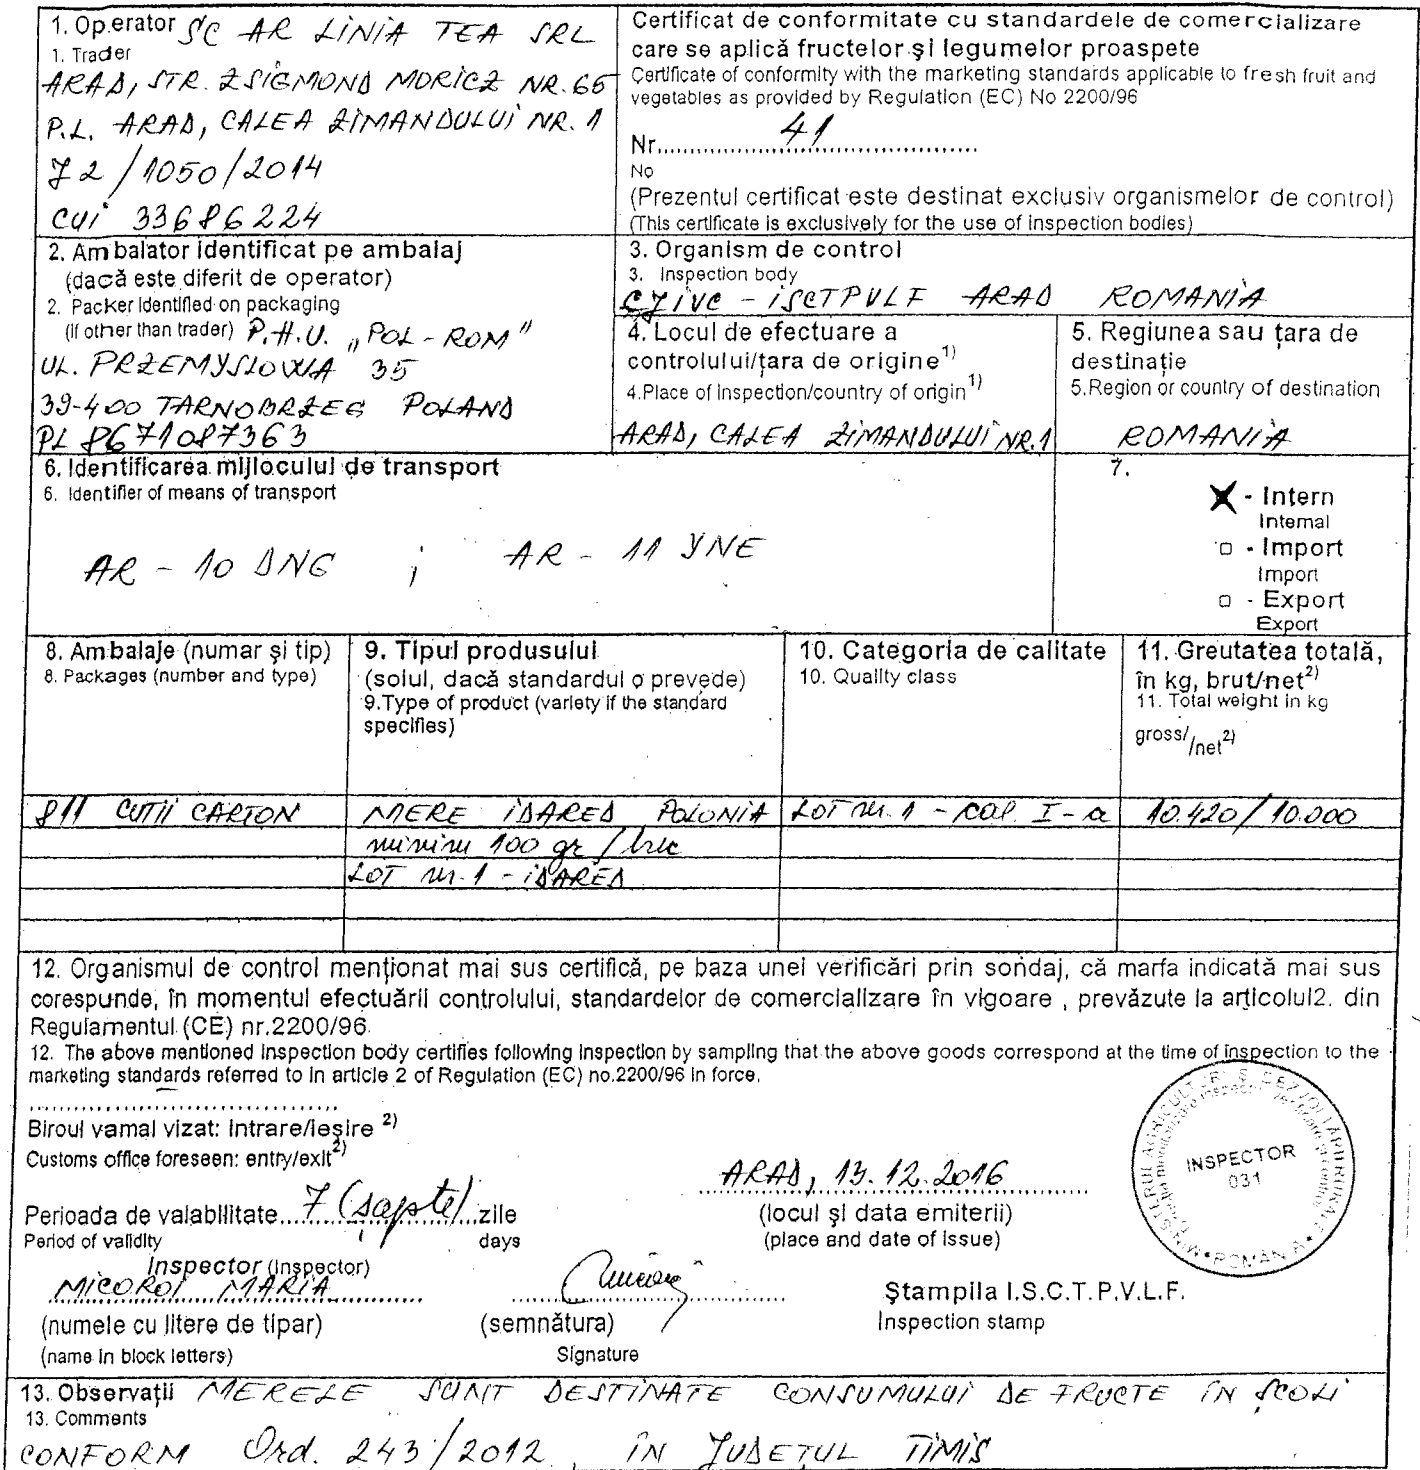 1. Operator SC AR LINIA TEA SRL
1. Trader
ARAD, STR. ZSIGMOND MORICZ NR. 65
P.L. ARAD, CALEA ZIMANDULUI NR. 1
J2/1050/2014
CUI 33686224
Certificat de conformitate cu standardele de comercializare
care se aplică fructelor şi legumelor proaspete
Certificate of conformity with the marketing standards applicable to fresh fruit and
vegetables as provided by Regulation (EC) No 2200/96
Nr. 41
No
(Prezentul certificat este destinat exclusiv organismelor de control)
(This certificate is exclusively for the use of inspection bodies)
2. Ambalator identificat pe ambalaj
(dacă este diferit de operator)
2. Packer identified on packaging
(if other than trader) P.H.U. „POL-ROM"
UL. PRZEMYSLOWA 35
39-400 TARNOBRZEG POLAND
PL 8671087363
3. Organism de control
3. Inspection body
CJIVC - ISCTPVLF ARAD ROMANIA
4. Locul de efectuare a
controlului/ţara de origine1)
4.Place of inspection/country of origin1)
ARAD, CALEA ZIMANDULUI NR.1
5. Regiunea sau ţara de
destinaţie
5.Region or country of destination
ROMANIA
6. Identificarea mijlocului de transport
6. Identifier of means of transport
AR - 10 DNG ; AR - 11 YNE
7.
X - Intern
Internal
□ - Import
Import
□ - Export
Export
8. Ambalaje (numar şi tip)
8. Packages (number and type)
9. Tipul produsului
(soiul, dacă standardul o prevede)
9.Type of product (variety if the standard
specifies)
10. Categoria de calitate
10. Quality class
11. Greutatea totală,
în kg, brut/net2)
11. Total weight in kg
gross/ /net2)
811 CUTII CARTON MERE IDARED POLONIA LOT nr. 1 - cal. I-a 10.420/10.000
minim 100 gr/buc
LOT nr. 1 - IDARED
12. Organismul de control menţionat mai sus certifică, pe baza unei verificări prin sondaj, că marfa indicată mai sus
corespunde, în momentul efectuării controlului, standardelor de comercializare în vigoare , prevăzute la articolul2. din
Regulamentul (CE) nr.2200/96
12. The above mentioned inspection body certifies following inspection by sampling that the above goods correspond at the time of inspection to the
marketing standards referred to in article 2 of Regulation (EC) no.2200/96 in force.
Biroul vamal vizat: intrare/ieşire 2)
Customs office foreseen: entry/exit2)
ARAD, 13.12.2016
(locul şi data emiterii)
(place and date of issue)
Perioada de valabilitate 7 (şapte) zile
Period of validity days
INSPECTOR
031
ROMÂNIA
Inspector (Inspector)
MICOROI MARIA
(numele cu litere de tipar)
(name in block letters)
(semnătura)
Signature
Ştampila I.S.C.T.P.V.L.F.
Inspection stamp
13. Observaţii MERELE SUNT DESTINATE CONSUMULUI DE FRUCTE ÎN ŞCOLI
13. Comments
CONFORM Ord. 243/2012, ÎN JUDEŢUL TIMIŞ